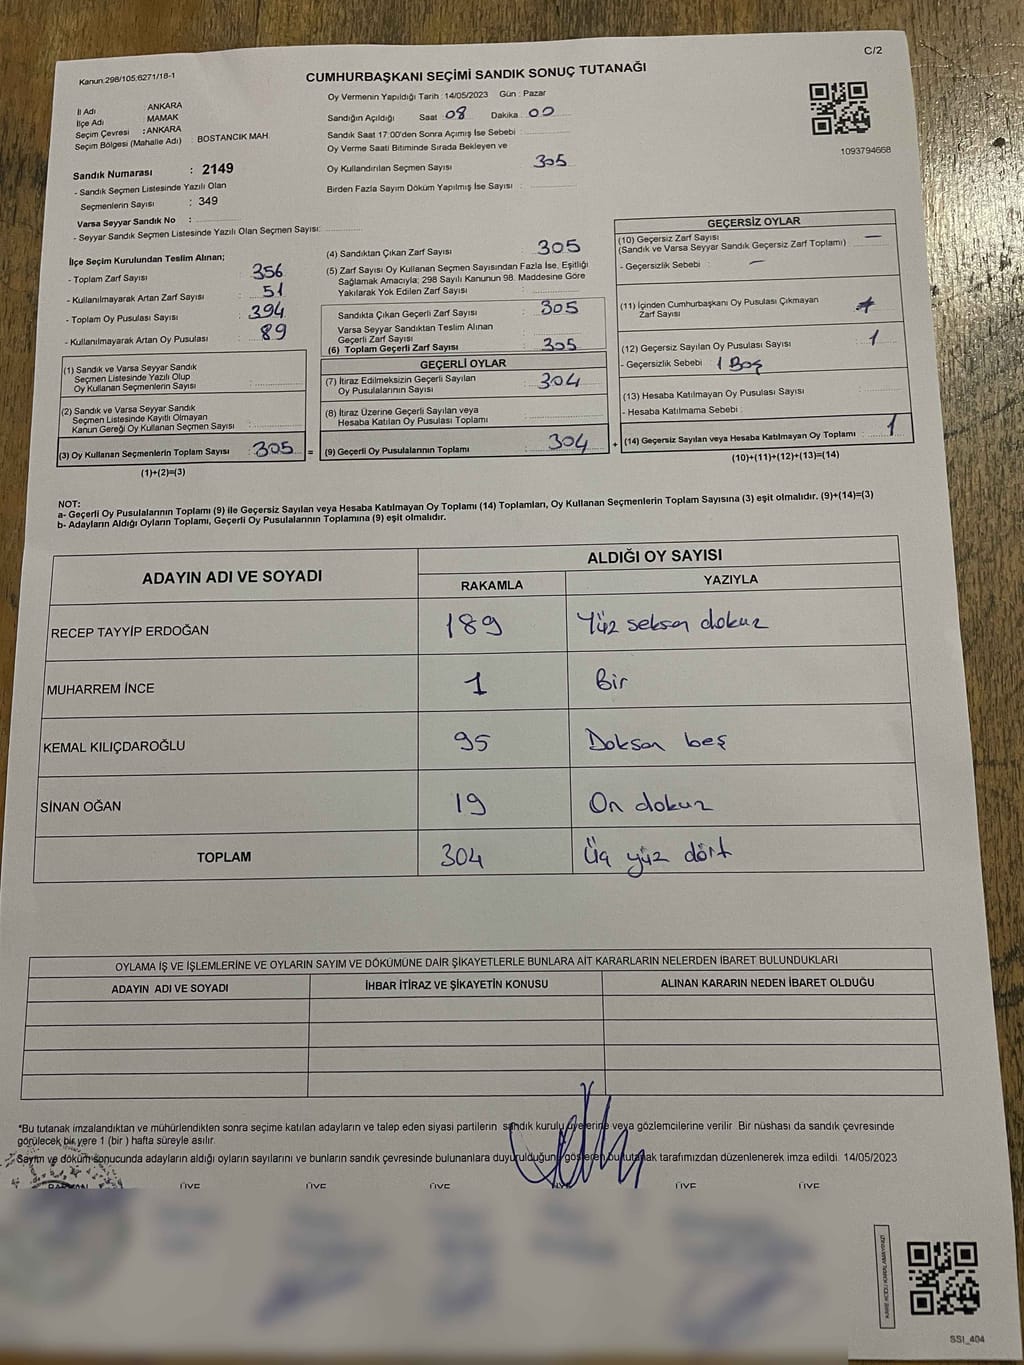 C/2
Kanun:298/105:6271/18-1
CUMHURBAŞKANI SEÇİMİ SANDIK SONUÇ TUTANAĞI
İl Adı : ANKARA
İlçe Adı : MAMAK
Seçim Çevresi : ANKARA
Seçim Bölgesi (Mahalle Adı) : BOSTANCIK MAH.
Oy Vermenin Yapıldığı Tarih : 14/05/2023 Gün : Pazar
Sandığın Açıldığı Saat 08 Dakika 00
Sandık Saat 17:00'den Sonra Açımış İse Sebebi :
Oy Verme Saati Bitiminde Sırada Bekleyen ve
Oy Kullandırılan Seçmen Sayısı 305
Birden Fazla Sayım Döküm Yapılmış İse Sayısı :
1093794668
Sandık Numarası : 2149
- Sandık Seçmen Listesinde Yazılı Olan
Seçmenlerin Sayısı : 349
Varsa Seyyar Sandık No :
- Seyyar Sandık Seçmen Listesinde Yazılı Olan Seçmen Sayısı:
İlçe Seçim Kurulundan Teslim Alınan;
- Toplam Zarf Sayısı : 356
- Kullanılmayarak Artan Zarf Sayısı : 51
- Toplam Oy Pusulası Sayısı : 394
- Kullanılmayarak Artan Oy Pusulası : 89
(1) Sandık ve Varsa Seyyar Sandık
Seçmen Listesinde Yazılı Olup
Oy Kullanan Seçmenlerin Sayısı :
(2) Sandık ve Varsa Seyyar Sandık
Seçmen Listesinde Kayıtlı Olmayan
Kanun Gereği Oy Kullanan Seçmen Sayısı :
(3) Oy Kullanan Seçmenlerin Toplam Sayısı : 305 =
(1)+(2)=(3)
(4) Sandıktan Çıkan Zarf Sayısı : 305
(5) Zarf Sayısı Oy Kullanan Seçmen Sayısından Fazla İse, Eşitliği
Sağlamak Amacıyla; 298 Sayılı Kanunun 98. Maddesine Göre
Yakılarak Yok Edilen Zarf Sayısı :
Sandıkta Çıkan Geçerli Zarf Sayısı : 305
Varsa Seyyar Sandıktan Teslim Alınan
Geçerli Zarf Sayısı :
(6) Toplam Geçerli Zarf Sayısı : 305
GEÇERLİ OYLAR
(7) İtiraz Edilmeksizin Geçerli Sayılan
Oy Pusulalarının Sayısı : 304
(8) İtiraz Üzerine Geçerli Sayılan veya
Hesaba Katılan Oy Pusulası Toplamı :
(9) Geçerli Oy Pusulalarının Toplamı : 304 +
GEÇERSİZ OYLAR
(10) Geçersiz Zarf Sayısı
(Sandık ve Varsa Seyyar Sandık Geçersiz Zarf Toplamı) : —
- Geçersizlik Sebebi : —
(11) İçinden Cumhurbaşkanı Oy Pusulası Çıkmayan
Zarf Sayısı :
(12) Geçersiz Sayılan Oy Pusulası Sayısı : 1
- Geçersizlik Sebebi : 1 Boş
(13) Hesaba Katılmayan Oy Pusulası Sayısı :
- Hesaba Katılmama Sebebi :
(14) Geçersiz Sayılan veya Hesaba Katılmayan Oy Toplamı : 1
(10)+(11)+(12)+(13)=(14)
NOT:
a- Geçerli Oy Pusulalarının Toplamı (9) ile Geçersiz Sayılan veya Hesaba Katılmayan Oy Toplamı (14) Toplamları, Oy Kullanan Seçmenlerin Toplam Sayısına (3) eşit olmalıdır. (9)+(14)=(3)
b- Adayların Aldığı Oyların Toplamı, Geçerli Oy Pusulalarının Toplamına (9) eşit olmalıdır.
ADAYIN ADI VE SOYADI
ALDIĞI OY SAYISI
RAKAMLA YAZIYLA
RECEP TAYYİP ERDOĞAN 189 Yüz seksen dokuz
MUHARREM İNCE 1 Bir
KEMAL KILIÇDAROĞLU 95 Doksan beş
SİNAN OĞAN 19 On dokuz
TOPLAM 304 Üç yüz dört
OYLAMA İŞ VE İŞLEMLERİNE VE OYLARIN SAYIM VE DÖKÜMÜNE DAİR ŞİKAYETLERLE BUNLARA AİT KARARLARIN NELERDEN İBARET BULUNDUKLARI
ADAYIN ADI VE SOYADI İHBAR İTİRAZ VE ŞİKAYETİN KONUSU ALINAN KARARIN NEDEN İBARET OLDUĞU
*Bu tutanak imzalandıktan ve mühürlendikten sonra seçime katılan adayların ve talep eden siyasi partilerin sandık kurulu üyelerine veya gözlemcilerine verilir. Bir nüshası da sandık çevresinde
görülecek bir yere 1 (bir ) hafta süreyle asılır.
Sayım ve döküm sonucunda adayların aldığı oyların sayılarını ve bunların sandık çevresinde bulunanlara duyurulduğunu gösteren bu tutanak tarafımızdan düzenlenerek imza edildi. 14/05/2023
ÜYE ÜYE ÜYE ÜYE ÜYE
SSI_404